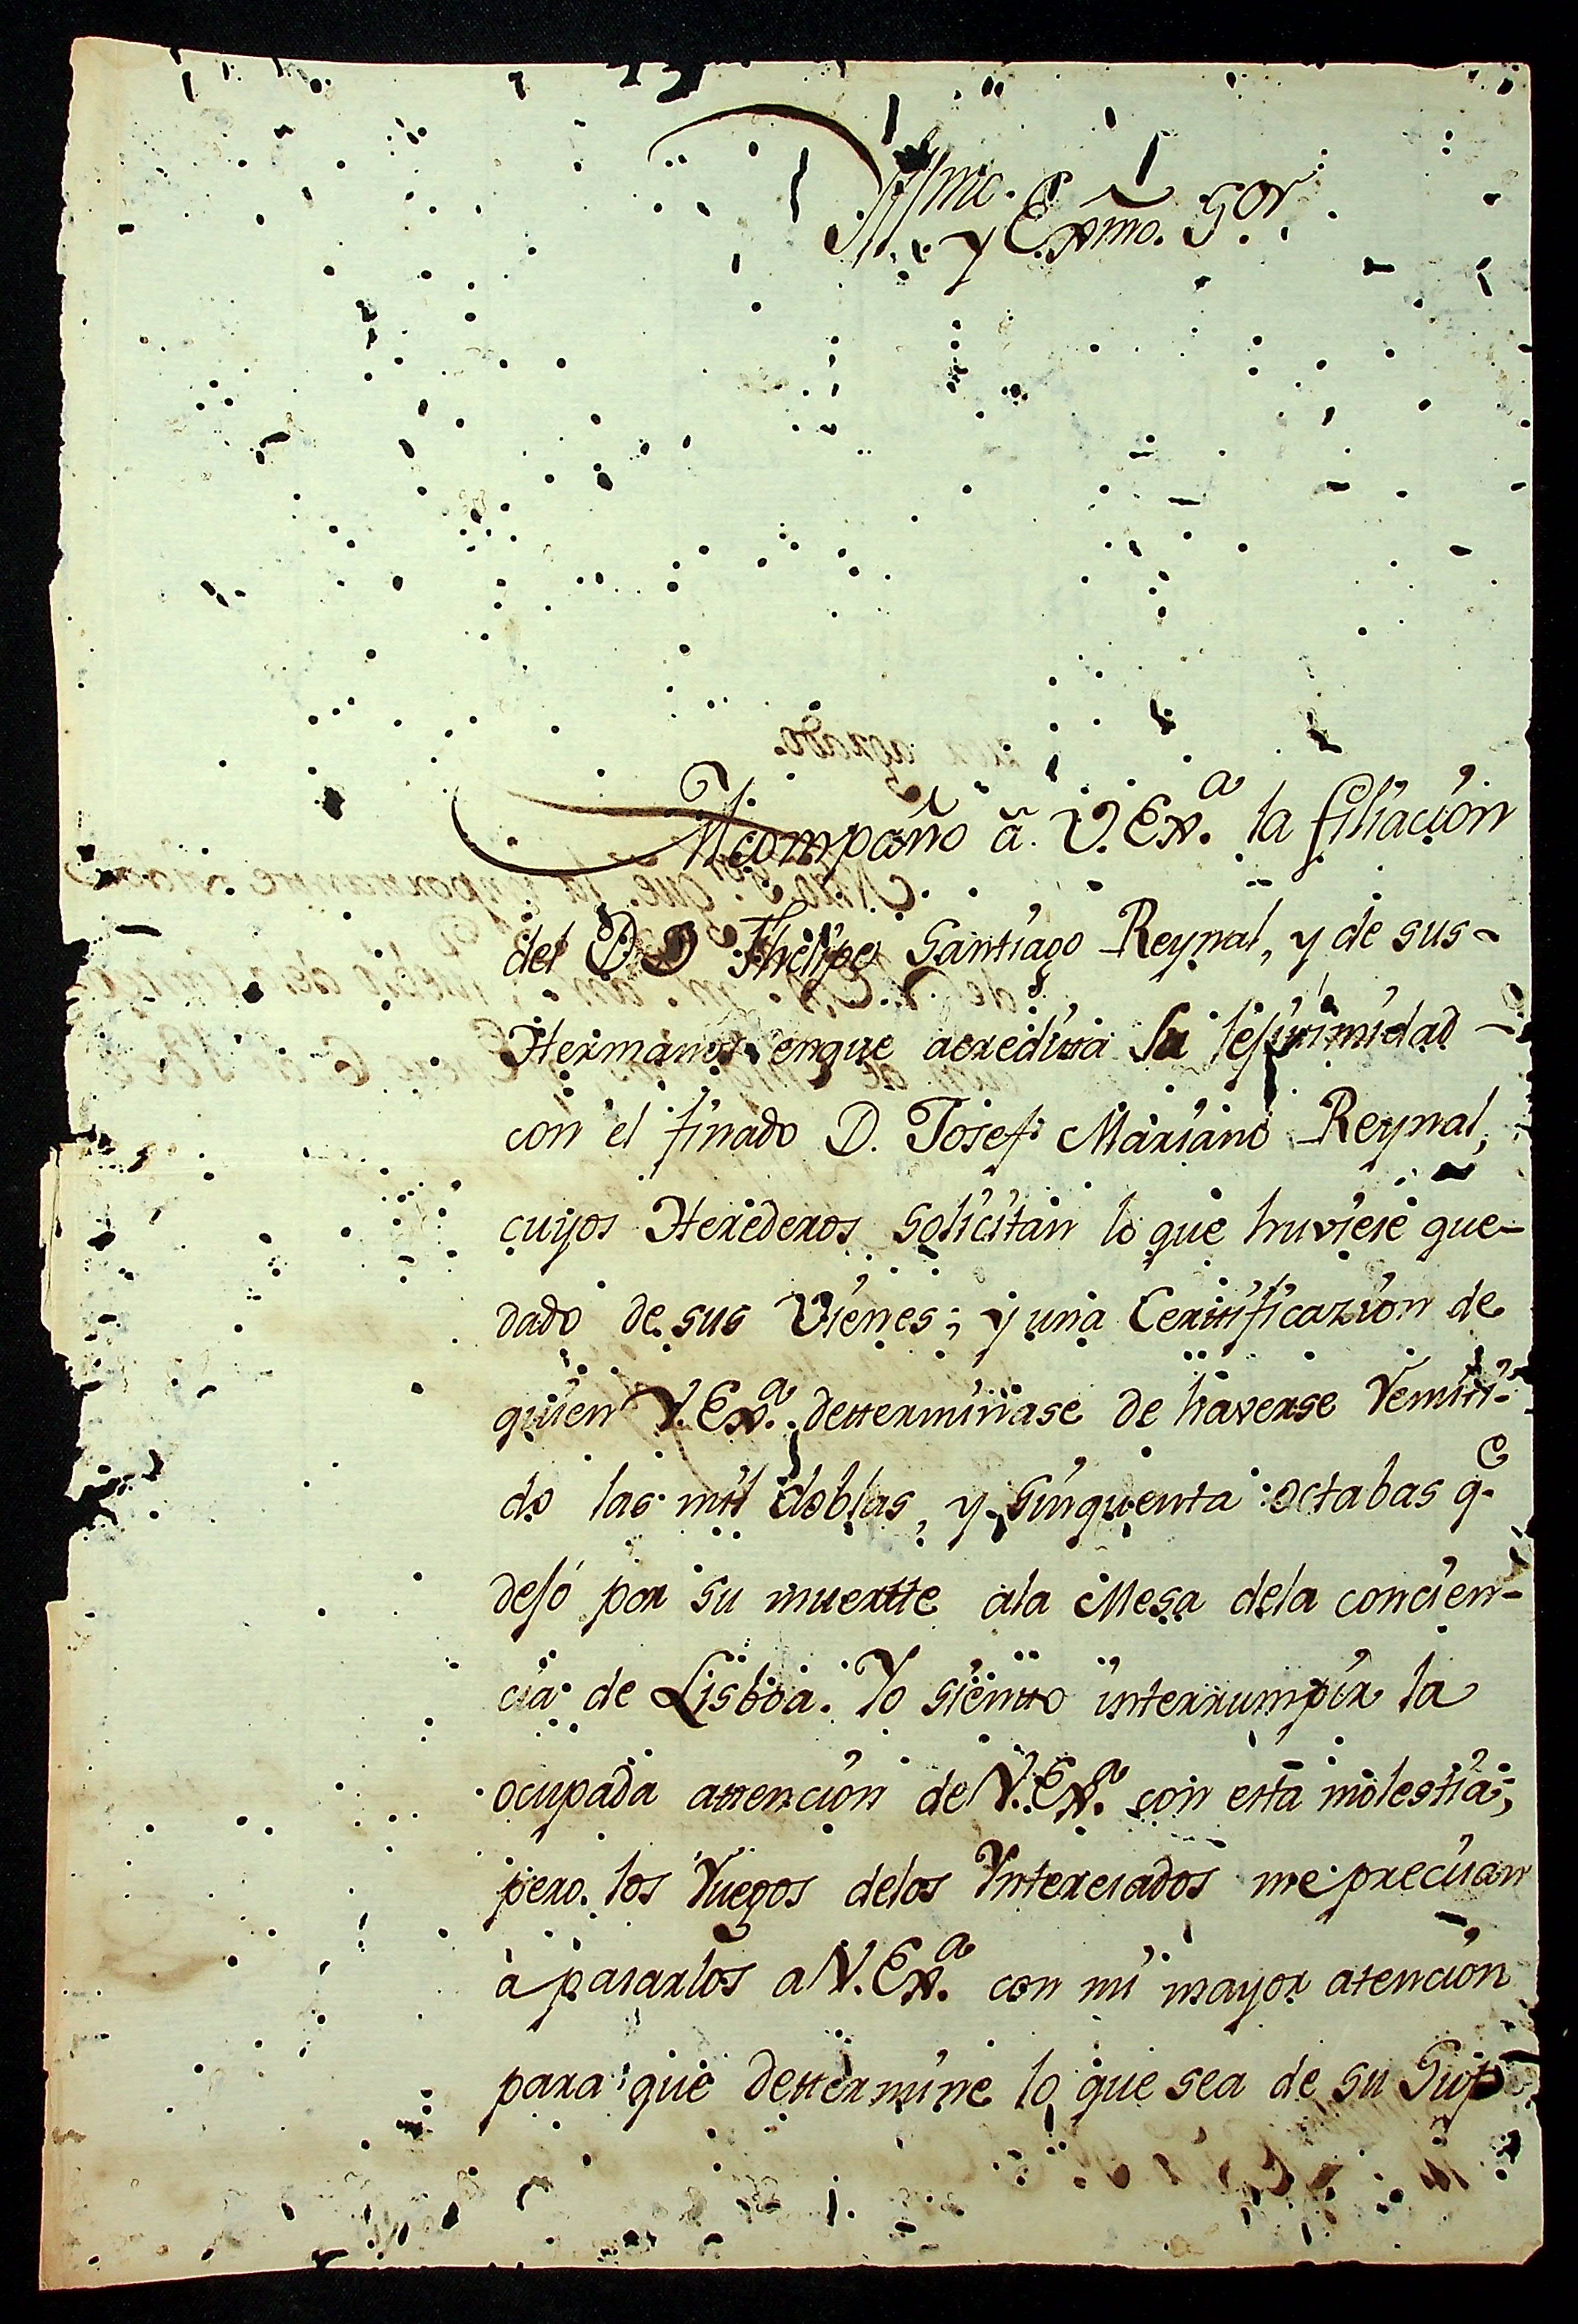 Illmo.
y Exmo. Sor.
Acompaño â V. Exa. la filiacion
del D D Fhelipe Santiago Reynal, y de sus
Hermanos enque acreditta su lejitimidad
con el finado D. Josef Mariano Reynal,
cuyos Herederos solicitan lo que huviese que-
dado de sus Vienes; y una Certtificazion de
quien V. Exa. detterminase de haverse remiti-
do las mil doblas, y sinquenta octabas qe.
dejó por su muertte ala Mesa dela concien-
cia de Lisboa. Yo sientto interrumpir la
ocupada attencion de V. Exa. con esta molestia;
pero los ruegos delos Ynteresados me precisan
à pasarlos a V. Exa. con mi mayor atencion
para que dettermine lo que sea de su Sup